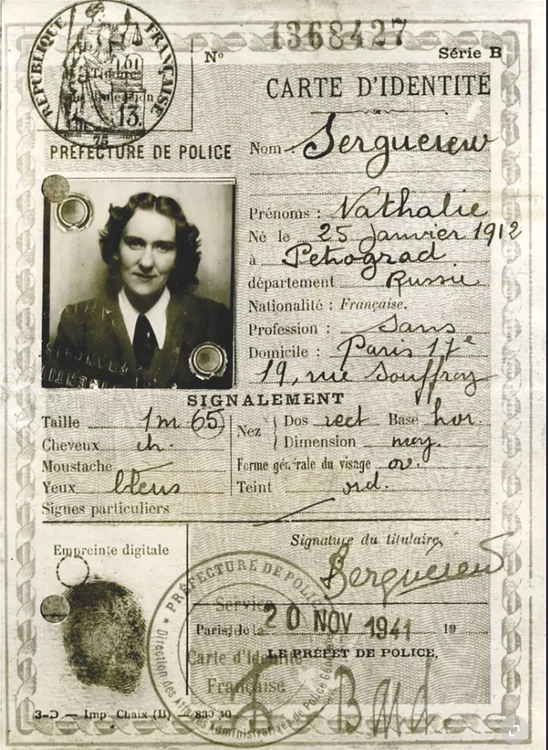 RÉPUBLIQUE FRANÇAISE
13
Nº 1368427
Série B
CARTE D'IDENTITÉ
PRÉFECTURE DE POLICE
Nom : Sergueiew
Prénoms : Nathalie
Né le 25 Janvier 1912
à Petrograd
département Russie
Nationalité : Française.
Profession : Sans
Domicile : Paris 17e
19, rue Jouffroy
SIGNALEMENT
Taille 1m 65
Cheveux ch.
Moustache
Yeux bleus
Signes particuliers
Nez Dos rect Base hor.
Dimension moy.
Forme générale du visage ov.
Teint ord.
Empreinte digitale
Signature du titulaire,
Sergueiew
PRÉFECTURE DE POLICE
Service
Carte d'Identité
Française
Paris, le 20 NOV 1941 19
LE PRÉFET DE POLICE,
Imp Chaix (B)